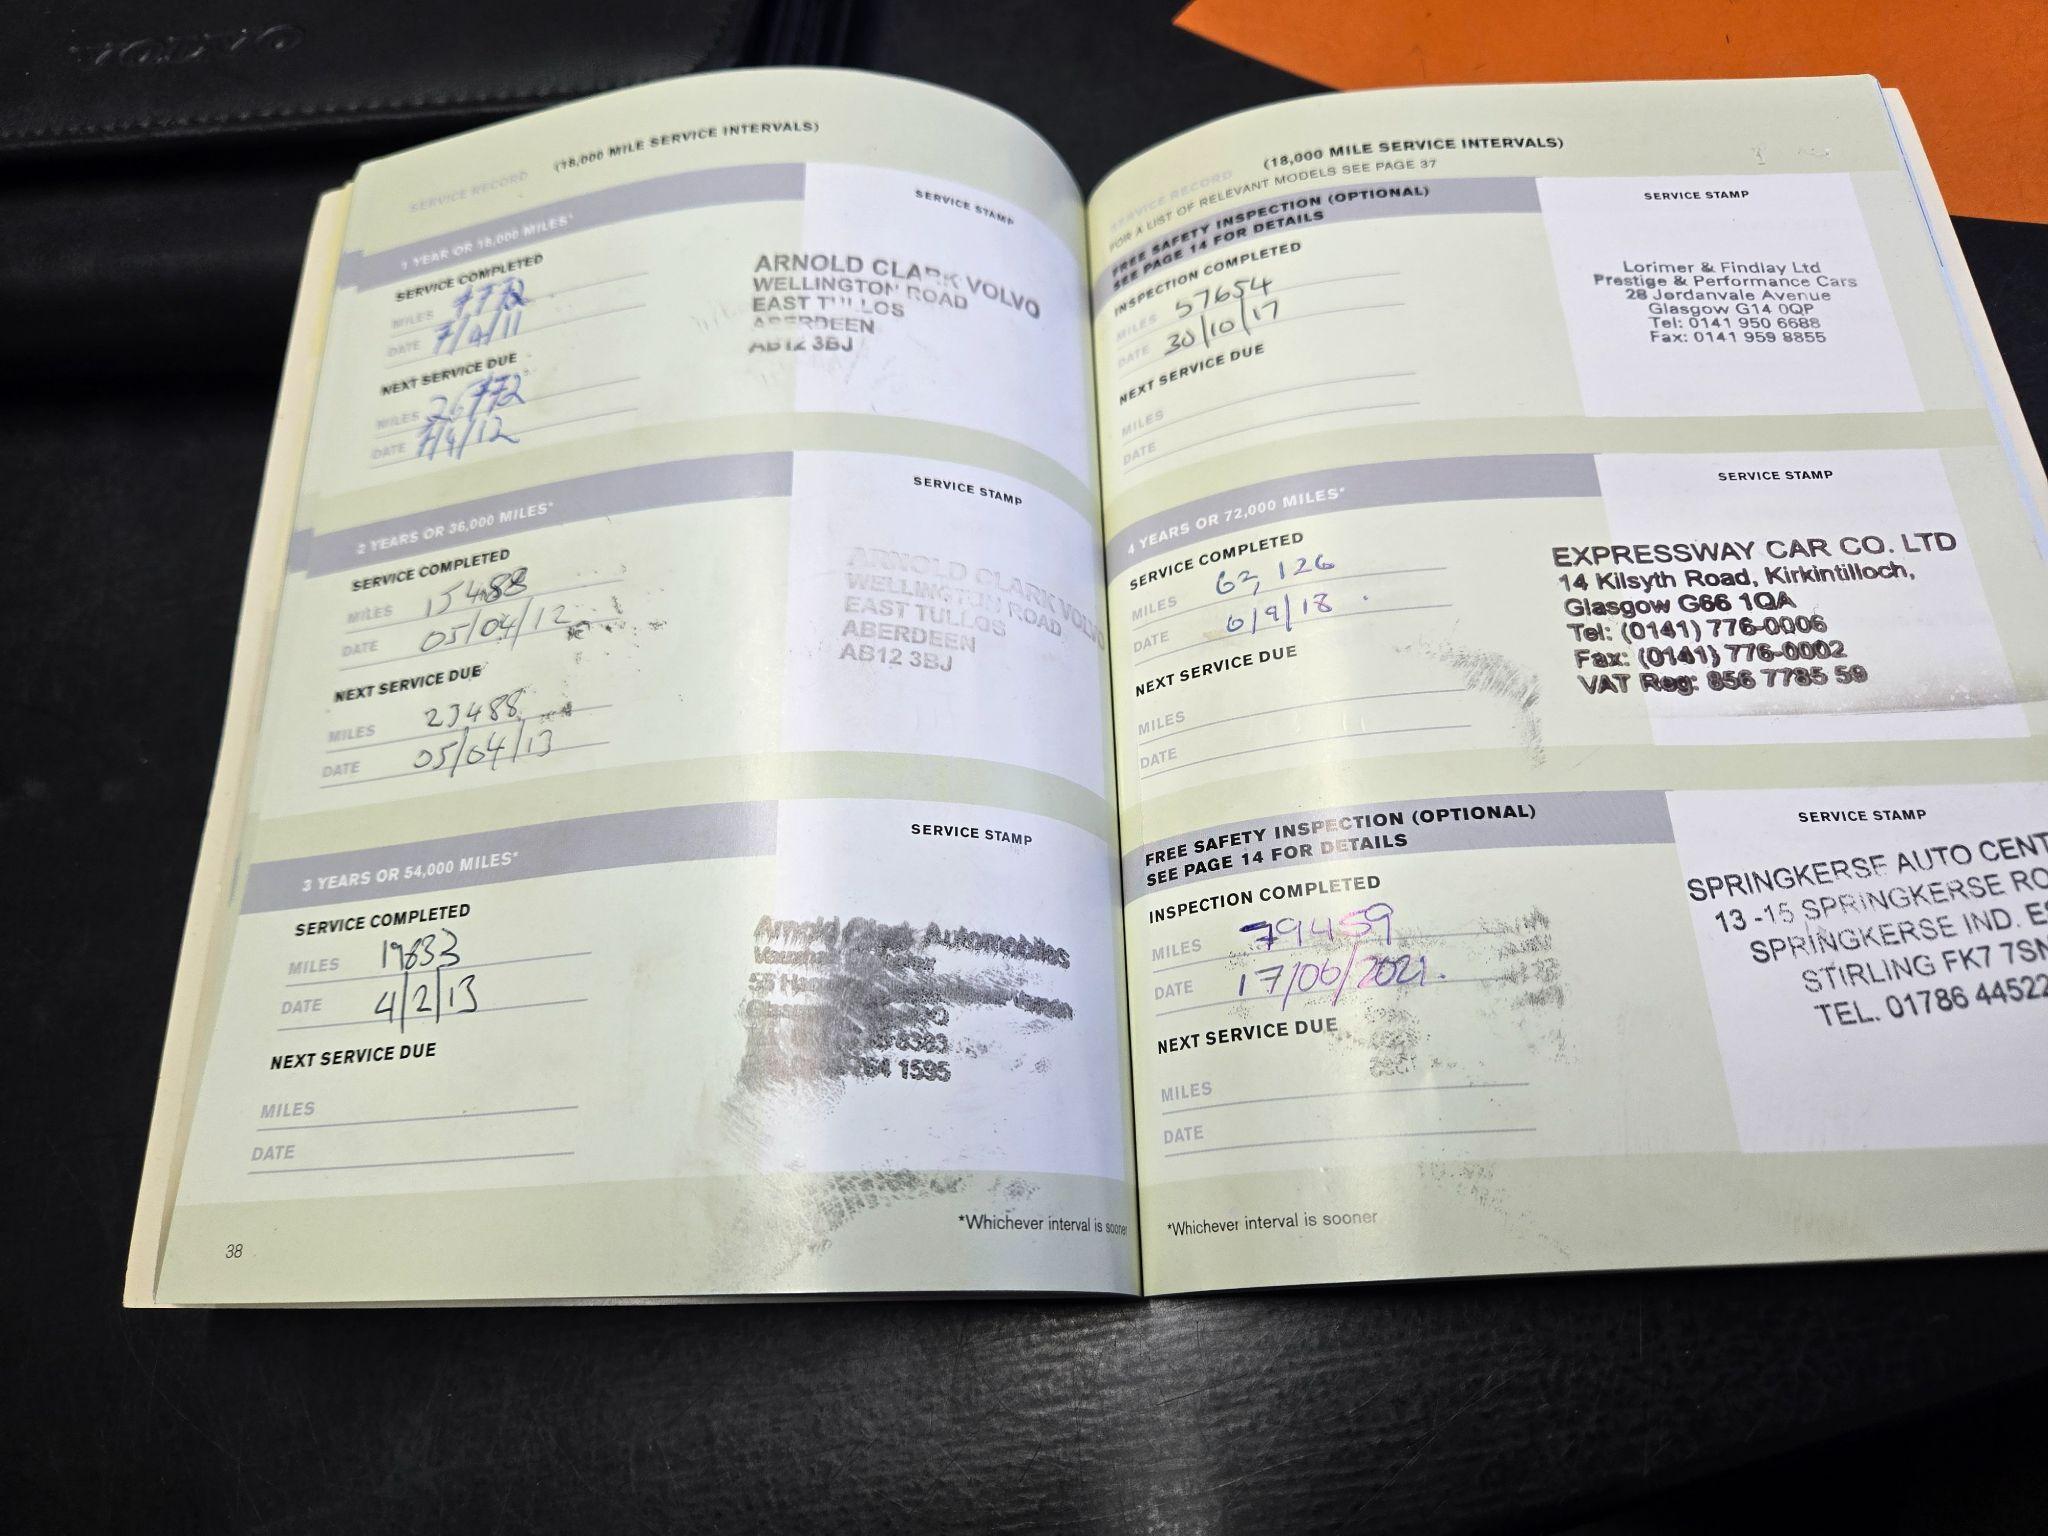 SERVICE RECORD (18,000 MILE SERVICE INTERVALS)
1 YEAR OR 18,000 MILES*
SERVICE COMPLETED
MILES 7772
DATE 7/4/11
NEXT SERVICE DUE
MILES 26772
DATE 7/4/12
SERVICE STAMP
ARNOLD CLARK VOLVO
WELLINGTON ROAD
EAST TULLOS
ABERDEEN
AB12 3BJ
2 YEARS OR 36,000 MILES*
SERVICE COMPLETED
MILES 15488
DATE 05/04/12
NEXT SERVICE DUE
MILES 23488
DATE 05/04/13
SERVICE STAMP
ARNOLD CLARK VOLVO
WELLINGTON ROAD
EAST TULLOS
ABERDEEN
AB12 3BJ
3 YEARS OR 54,000 MILES*
SERVICE COMPLETED
MILES 19833
DATE 4/2/13
NEXT SERVICE DUE
MILES
DATE
SERVICE STAMP
Arnold Clark Automobiles
8383
1595
*Whichever interval is sooner
38
SERVICE RECORD (18,000 MILE SERVICE INTERVALS)
FOR A LIST OF RELEVANT MODELS SEE PAGE 37
FREE SAFETY INSPECTION (OPTIONAL)
SEE PAGE 14 FOR DETAILS
INSPECTION COMPLETED
MILES 57654
DATE 30/10/17
NEXT SERVICE DUE
MILES
DATE
SERVICE STAMP
Lorimer & Findlay Ltd
Prestige & Performance Cars
28 Jordanvale Avenue
Glasgow G14 0QP
Tel: 0141 950 6688
Fax: 0141 959 8855
4 YEARS OR 72,000 MILES*
SERVICE COMPLETED
MILES 62,126
DATE 6/9/18.
NEXT SERVICE DUE
MILES
DATE
SERVICE STAMP
EXPRESSWAY CAR CO. LTD
14 Kilsyth Road, Kirkintilloch,
Glasgow G66 1QA
Tel: (0141) 776-0006
Fax: (0141) 776-0002
VAT Reg: 856 7785 59
FREE SAFETY INSPECTION (OPTIONAL)
SEE PAGE 14 FOR DETAILS
INSPECTION COMPLETED
MILES 79459
DATE 17/06/2021.
NEXT SERVICE DUE
MILES
DATE
SERVICE STAMP
SPRINGKERSE AUTO CENT
13 -15 SPRINGKERSE RO
SPRINGKERSE IND. ES
STIRLING FK7 7SN
TEL. 01786 44522
*Whichever interval is sooner